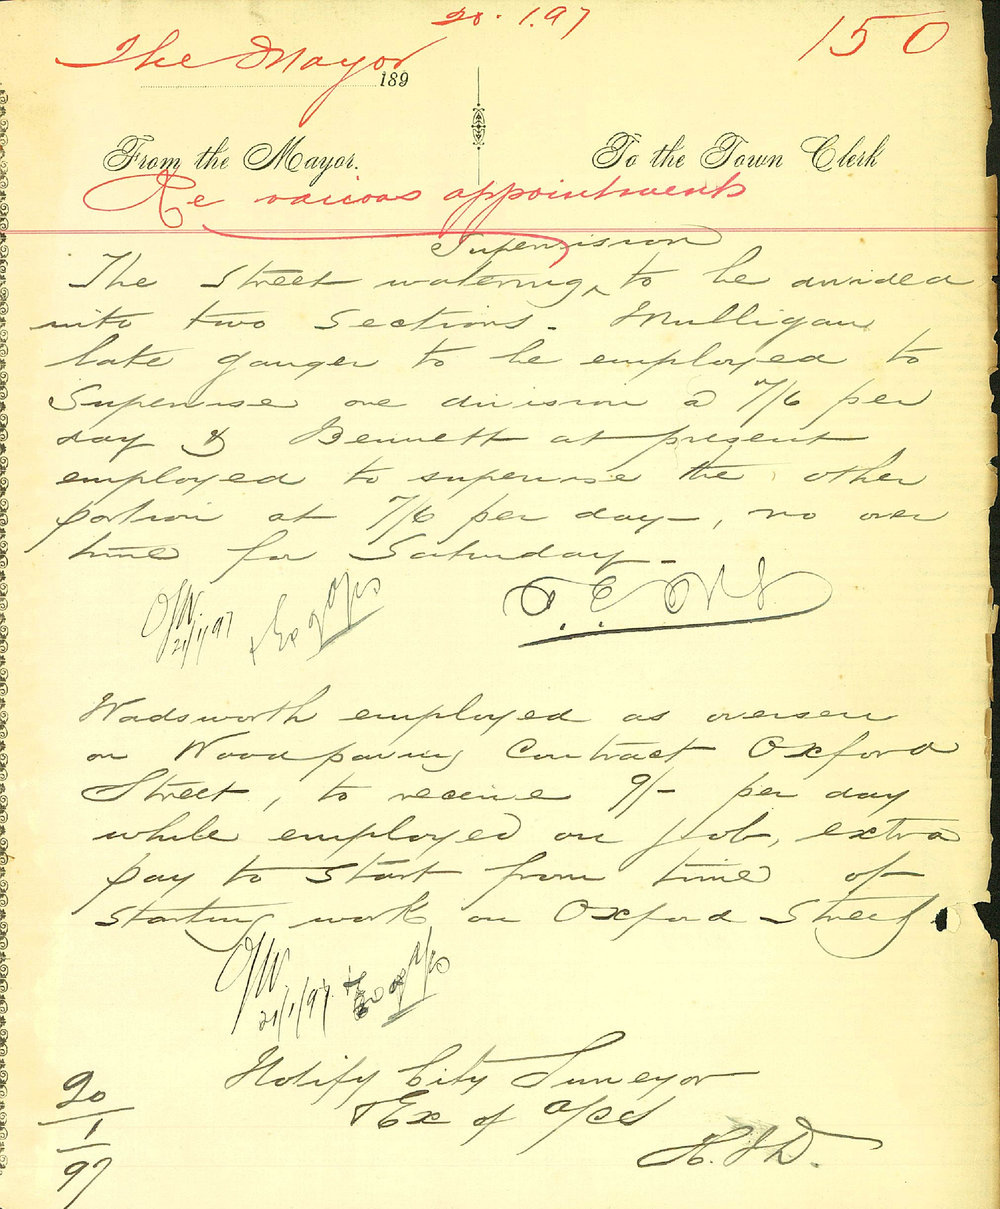 20.1.97
150
The Mayor
189
From the Mayor. To the Town Clerk
Re various appointments
Supervision
The Street watering ^ to be divided
into two Sections. Mulligan
late ganger to be employed to
Supervise one division @ 7/6 per
day & Bennett at present
employed to supervise the other
portion at 7/6 per day, no over
time for Saturday.
21/1/97
& Ex of A/cs
Wadsworth employed as overseer
on Woodpaving Contract Oxford
Street, to receive 9/- per day
while employed on job, extra
pay to start from time of
starting work on Oxford Street
21/1/97
Notify City Surveyor
& Ex of A/cs
20/1/97